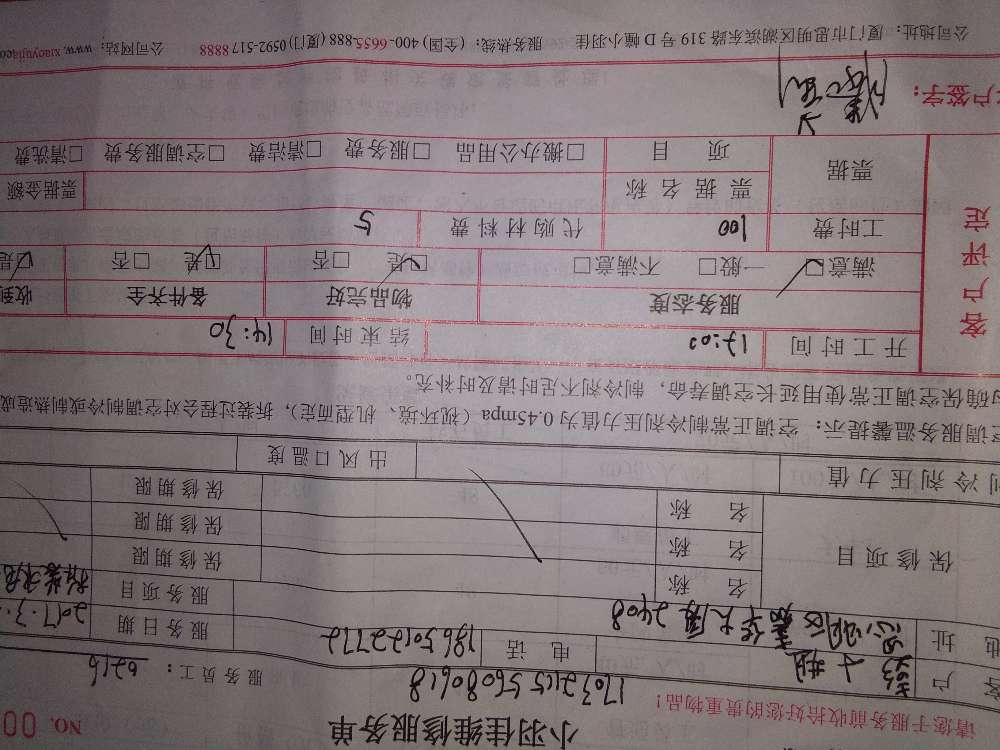 小羽佳维修服务单
NO. 00
请您于服务前收拾好您的贵重物品！
1703216556080618
服务员工：6216
客户 小姐 电话 18650122772 服务日期 2017.3.
地址 思明区 大厦 2408 服务项目
保修项目 名称 保修期限
名称 保修期限
名称 保修期限
制冷剂压力值 出风口温度
空调服务温馨提示：空调正常制冷剂压力值为 0.45mpa（视环境、机型而定），拆装过程会对空调制冷或制热造成
的确保空调正常使用延长空调寿命，制冷剂不足时请及时补充。
客户评定
开工时间 12:00 结束时间 14:30
服务态度 物品完好 备件齐全 收到
满意□ 一般□ 不满意□ □是 □否 □是 □否 □是
工时费 100 代购材料费 5
票据 票据名称 票据金额
项目 □搬办公用品 □服务费 □清洁费 □空调服务费 □清洗费
客户签字：
公司地址：厦门市思明区湖滨东路 319 号 D 幢小羽佳 服务热线：（全国）400-6655-888（厦门）0592-517 8888 公司网站：www.xiaoyujiaco